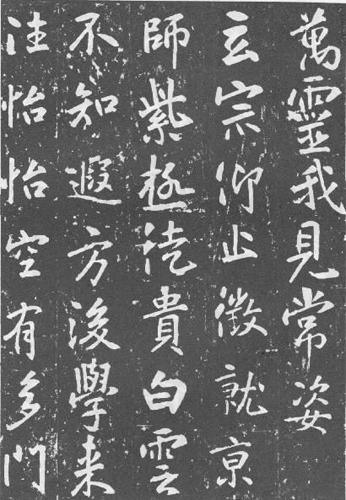 萬靈我見常姿
玄宗仰止徵就京
師紫極徒貴白雲
不知遐方後學來
往怡怡空有多門